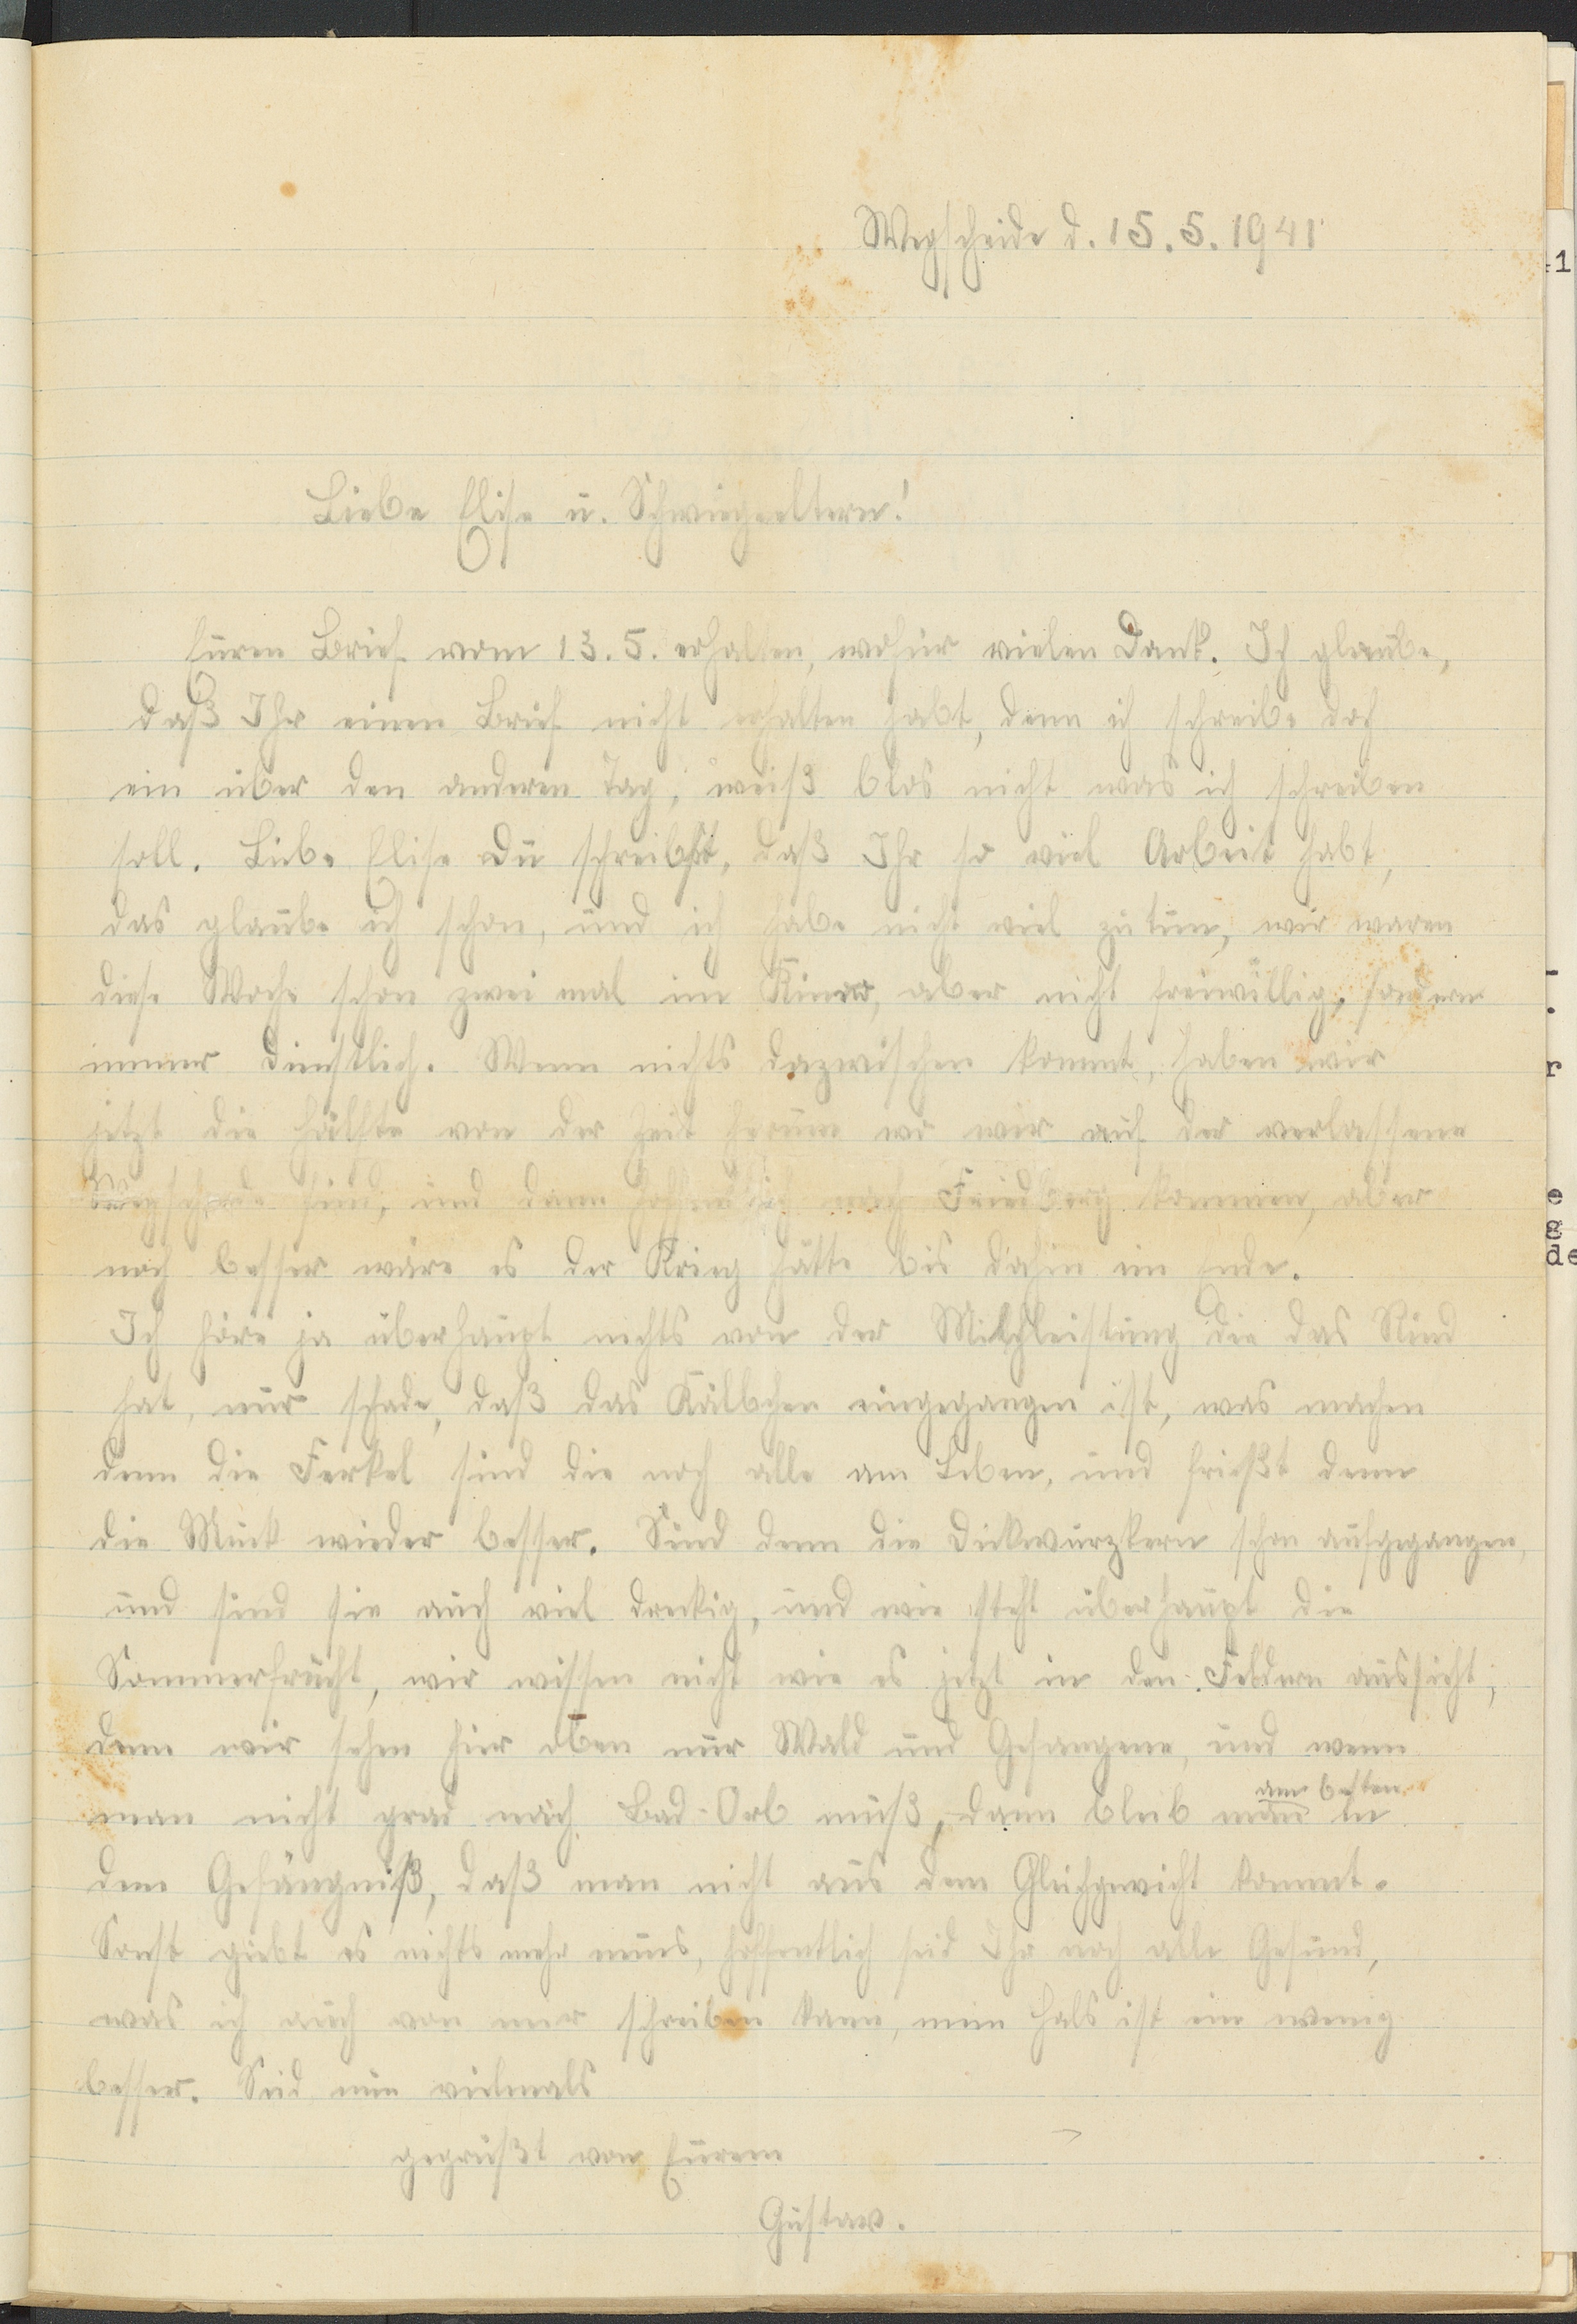 Wegscheide d. 15.5.1941
Liebe Elise u. Schwiegereltern!
Euren Brief vom 13.5. erhalten, wofür vielen Dank. Ich glaube,
daß Ihr einen Brief nicht erhalten habt, denn ich schreibe doch
ein über den anderen Tag, weiß blos nicht was ich schreiben
soll. Liebe Elise Du schreibst, daß Ihr so viel Arbeit habt,
das glaube ich schon, und ich habe nicht viel zu tun, wir waren
diese Woche schon zwei mal im Kino, aber nicht freiwillig, sondern
immer dienstlich. Wenn nichts dazwischen kommt, haben wir
jetzt die Hälfte von der Zeit herum wo wir auf der verlassene
Wegscheide sind, und dann hoffentlich nach Friedberg kommen, aber
noch besser wäre es der Krieg hätte bis dahin ein Ende.
Ich höre ja überhaupt nichts von der Milchleistung die das Rind
hat, nur schade, daß das Kälbchen eingegangen ist, was machen
denn die Ferkel sind die noch alle am Leben, und frießt denn
die Muck wieder besser. Sind denn die Dickwurzkern schon aufgegangen,
und sind sie auch viel dreckig, und wie steht überhaupt die
Sommerfrucht, wir wissen nicht wie es jetzt in den Feldern aussieht,
denn wir sehen hier oben nur Wald und Gefangene, und wenn
man nicht grad nach Bad-Orb muß, dann bleib man am besten in
dem Gefängniß, daß man nicht aus dem Gleichgewicht kommt.
Sonst giebt es nichts mehr neues, hoffentlich seid Ihr noch alle Gesund,
was ich auch von mir schreiben kann, mein Hals ist ein wenig
besser. Seid nun vielmals
gegrüßt von Eurem
Gustav.